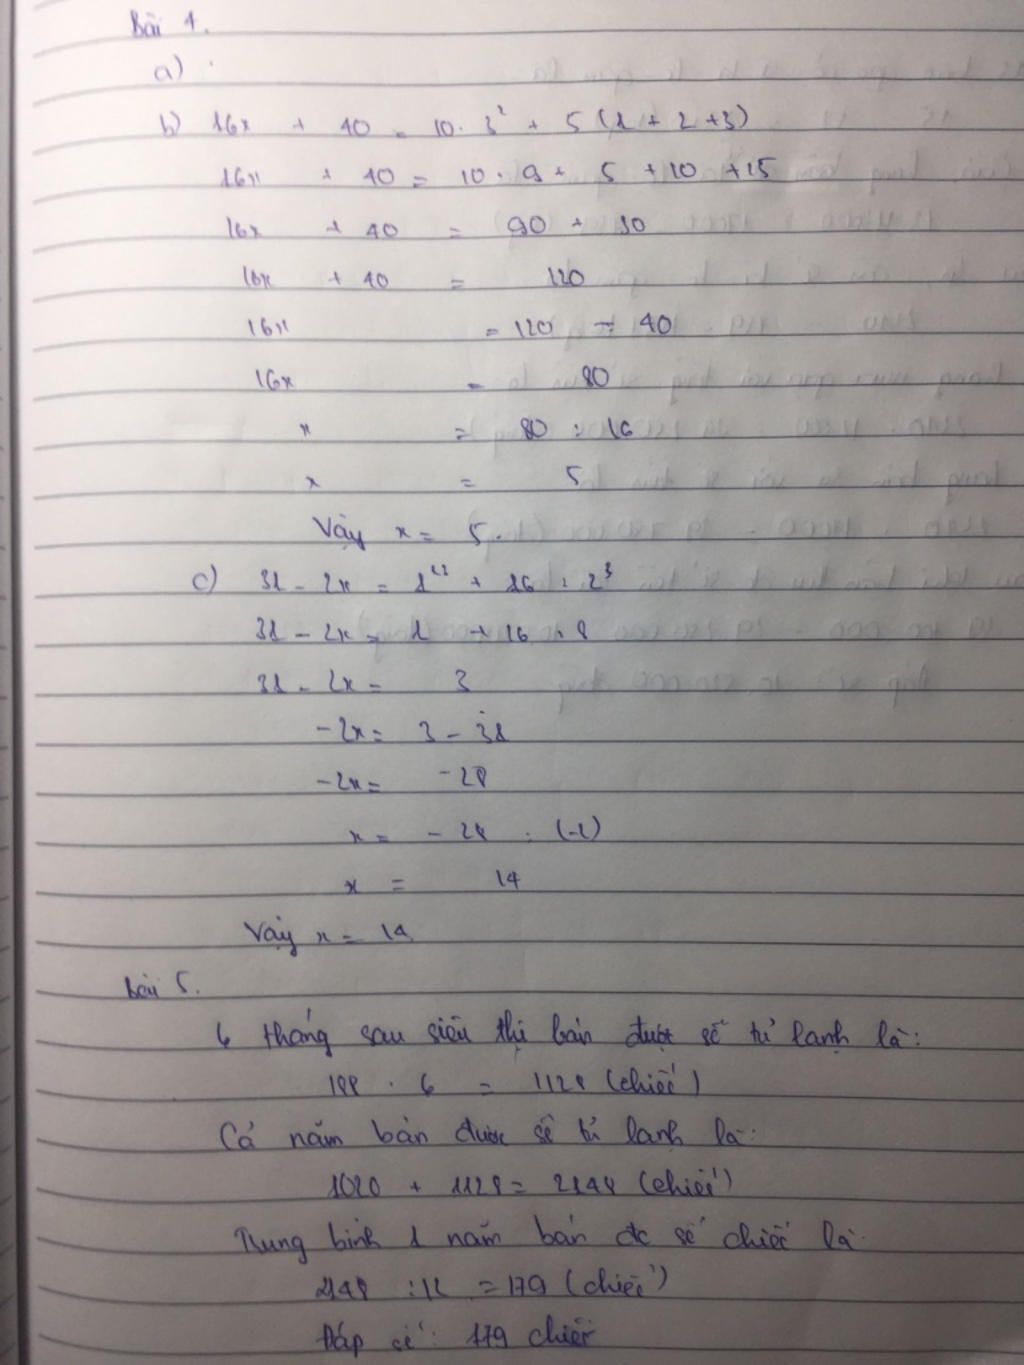 Bài 4.
a)
b) 16x + 40 = 10 . 3² + 5 (1 + 2 + 3)
16x + 40 = 10 . 9 + 5 + 10 + 15
16x + 40 = 90 + 30
16x + 40 = 120
16x = 120 - 40
16x = 80
x = 80 : 16
x = 5
Vậy x = 5.
c) 31 - 2x = 1¹² + 16 : 2³
31 - 2x = 1 + 16 : 8
31 - 2x = 3
-2x = 3 - 31
-2x = -28
x = -28 : (-2)
x = 14
Vậy x = 14
Bài 5.
6 tháng sau siêu thị bán được số tủ lạnh là:
188 . 6 = 1128 (chiếc)
Cả năm bán được số tủ lạnh là:
1020 + 1128 = 2148 (chiếc)
Trung bình 1 năm bán đc số chiếc là
2148 : 12 = 179 (chiếc)
Đáp số: 179 chiếc